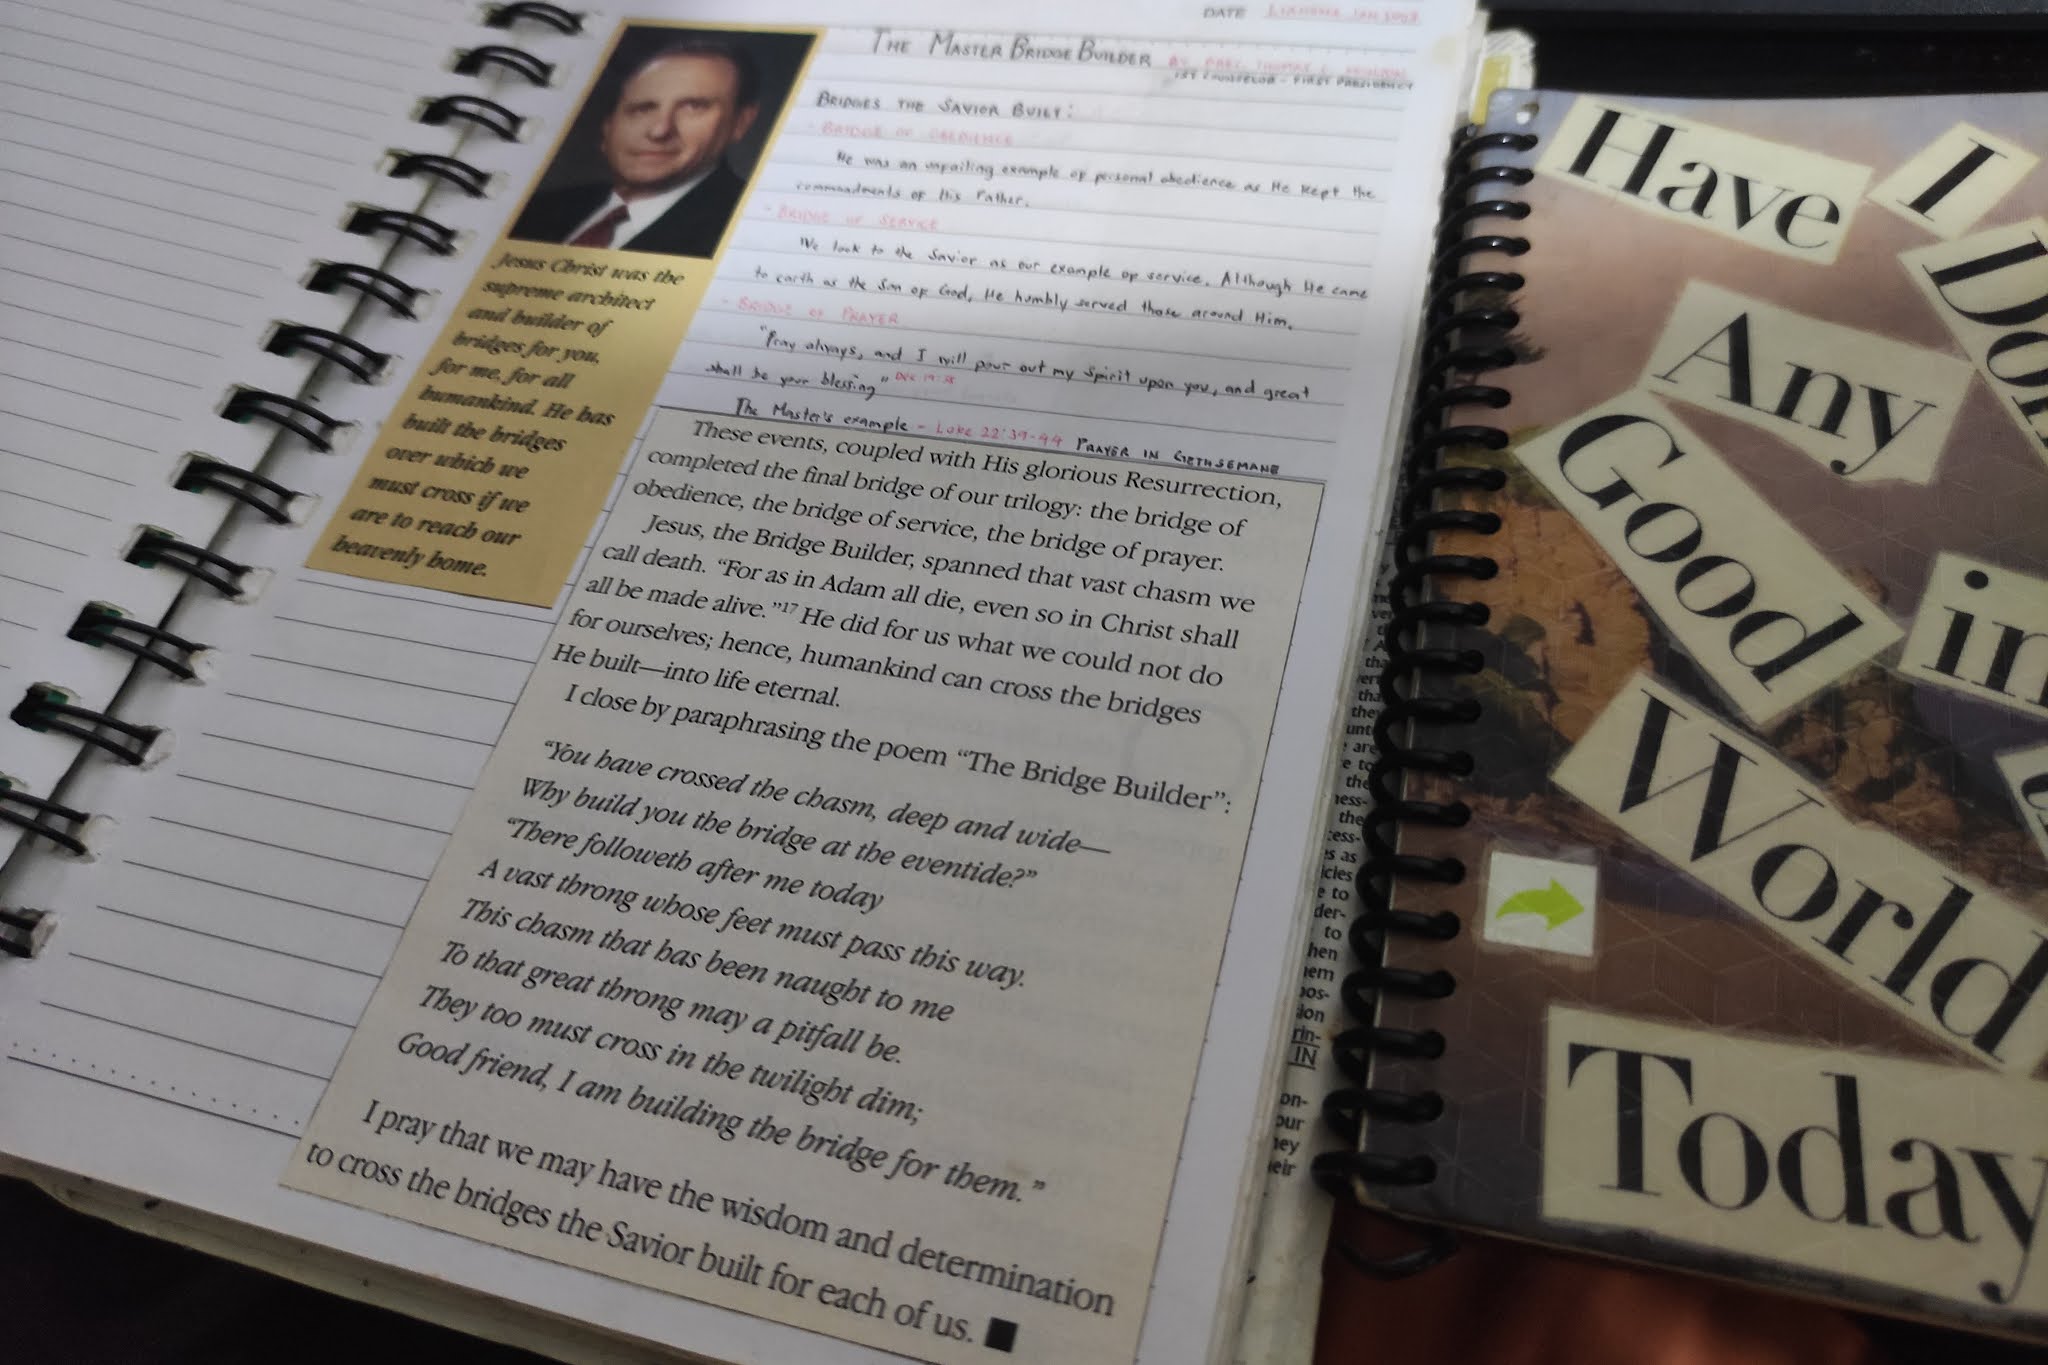 DATE LIAHONA JAN 2003
THE MASTER BRIDGE BUILDER BY PRES. THOMAS S. MONSON
1ST COUNSELOR - FIRST PRESIDENCY
BRIDGES THE SAVIOR BUILT:
- BRIDGE OF OBEDIENCE
He was an unfailing example of personal obedience as He kept the
commandments of His Father.
- BRIDGE OF SERVICE
We look to the Savior as our example of service. Although He came
to earth as the Son of God, He humbly served those around Him.
- BRIDGE OF PRAYER
"Pray always, and I will pour out my Spirit upon you, and great
shall be your blessing" D&C 19:38
The Master's example - Luke 22:39-44 PRAYER IN GETHSEMANE
Jesus Christ was the
supreme architect
and builder of
bridges for you,
for me, for all
humankind. He has
built the bridges
over which we
must cross if we
are to reach our
heavenly home.
These events, coupled with His glorious Resurrection,
completed the final bridge of our trilogy: the bridge of
obedience, the bridge of service, the bridge of prayer.
Jesus, the Bridge Builder, spanned that vast chasm we
call death. “For as in Adam all die, even so in Christ shall
all be made alive.”17 He did for us what we could not do
for ourselves; hence, humankind can cross the bridges
He built—into life eternal.
I close by paraphrasing the poem “The Bridge Builder”:
“You have crossed the chasm, deep and wide—
Why build you the bridge at the eventide?”
“There followeth after me today
A vast throng whose feet must pass this way.
This chasm that has been naught to me
To that great throng may a pitfall be.
They too must cross in the twilight dim;
Good friend, I am building the bridge for them.”
I pray that we may have the wisdom and determination
to cross the bridges the Savior built for each of us. ■
Have I
Any
Good in
World
Today